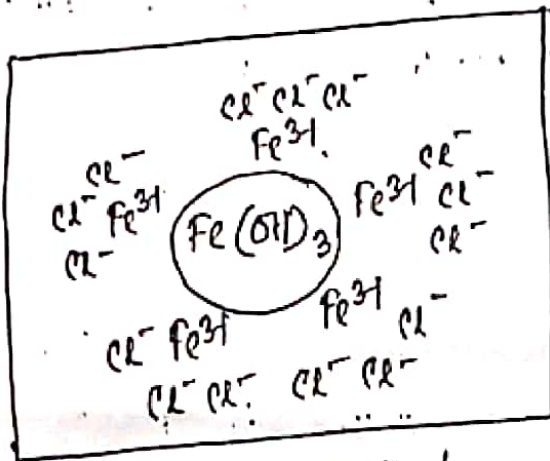 Cl⁻ Cl⁻ Cl⁻
Fe³⁺
Cl⁻
Cl⁻ Fe³⁺
Cl⁻
Fe(OH)₃
Fe³⁺ Cl⁻
Cl⁻
Cl⁻
Cl⁻ Fe³⁺
Cl⁻ Cl⁻
Fe³⁺ Cl⁻
Cl⁻ Cl⁻